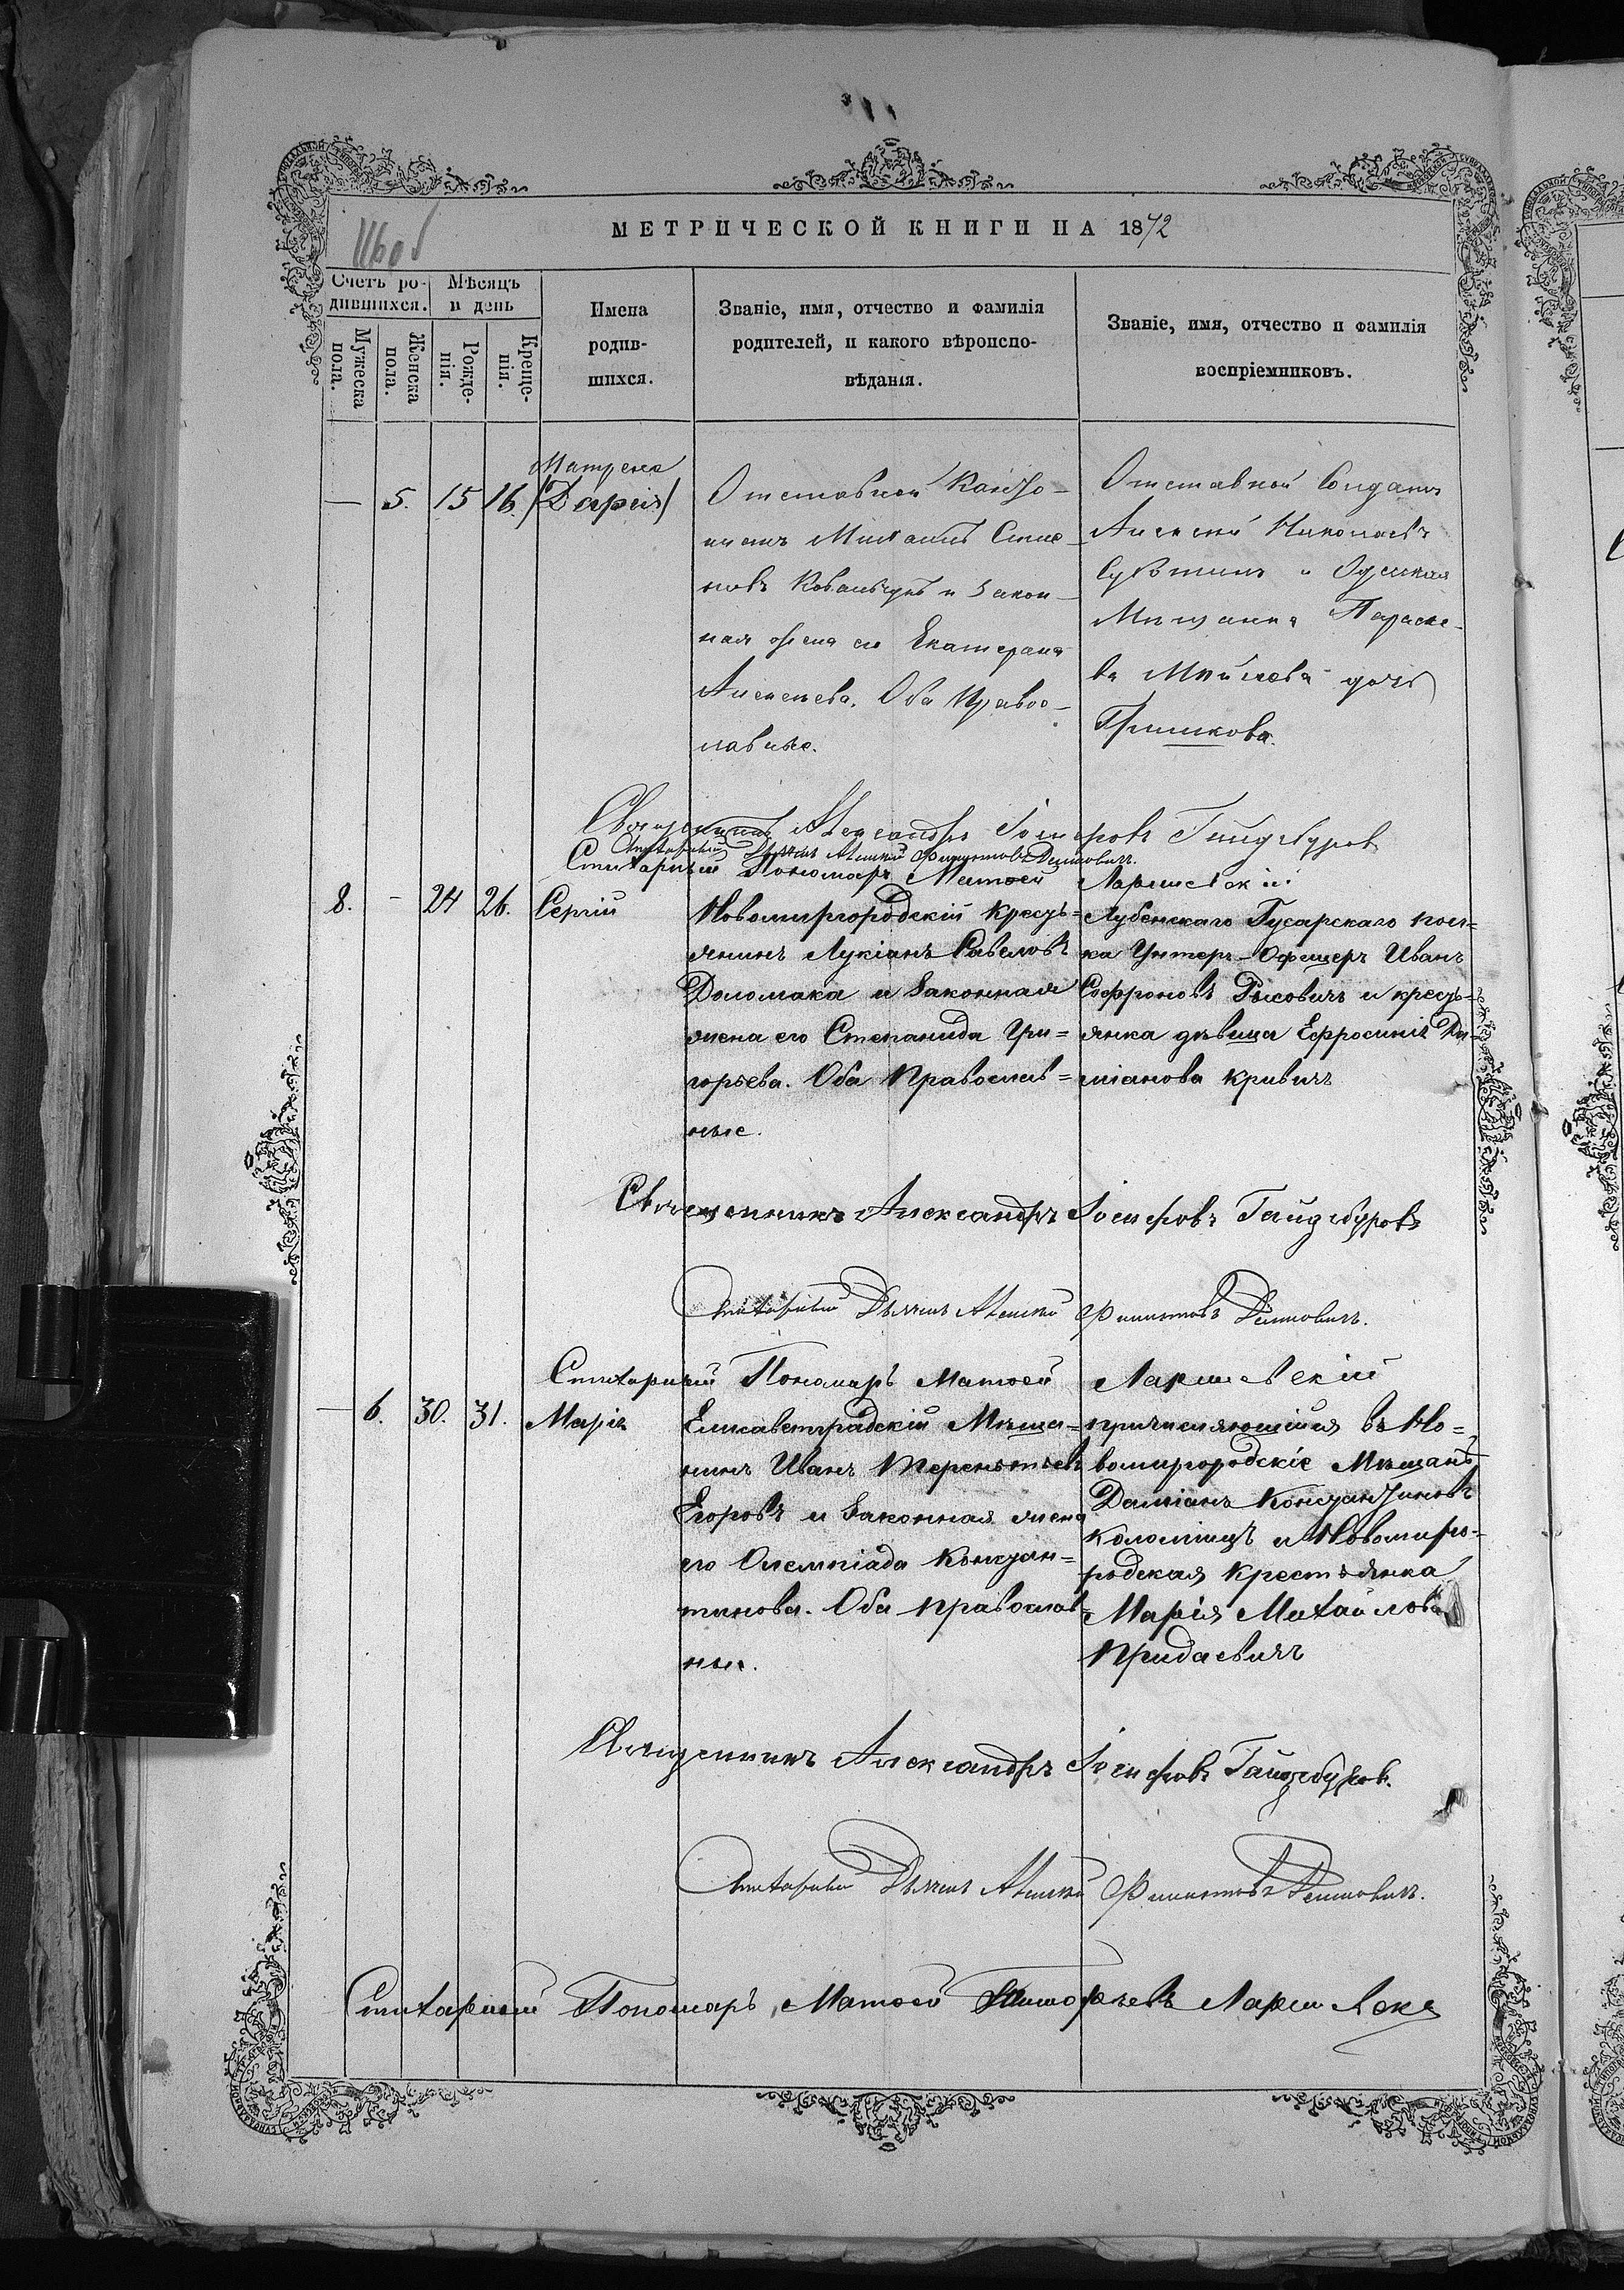 МЕТРИЧЕСКОЙ КНИГИ НА 1872
Счетъ ро-
дившихся.
Мѣсяцъ
и день
Мужеска
пола.
Женска
пола.
Рожде-
нія.
Креще-
нія.
Имена
родив-
шихся.
Званіе, имя, отчество и фамилія
родителей, и какого вѣроиспо-
вѣданія.
Званіе, имя, отчество и фамилія
воспріемниковъ.
Матрена
— 5. 15 16. (Дарія)
Отставной
Михаилъ
и закон-
ная жена его Екатерина
Алексеева. Оба Правос-
лавные.
Отставной Солдатъ
Алексей Николаевъ
и Одесская
Мѣщанка Параске-
ва дочь
Гришкова.
Священникъ Александръ Іосифовъ Гайдабуровъ
Стихарный Дьячекъ Алексей Филиповъ Димовичъ.
Стихарный Пономарь Матвей Ларшевскій
8. - 24 26. Сергій
Новомиргородскій кресть=
янинъ Лукіанъ Савеловъ
Доломака и Законная
жена его Степанида Гри=
горьева. Оба Православ=
ные.
Лубенскаго Гусарскаго пол=
ка Унтер-Офицеръ Иванъ
Софроновъ и кресть-
янка дѣвица Ефросинія Да-
міанова Кривичъ
Священникъ Александръ Іосифовъ Гайдабуровъ
Стихарный Дьячекъ Алексей Филиповъ Димовичъ.
Стихарный Пономарь Матвей Ларшевскій
— 6. 30. 31. Марія
Елисаветградскій Мѣща=
нинъ Иванъ Терентьевъ
Егоровъ и Законная жена
его Олемпіада Констан=
тинова. Оба православ=
ные.
причисляющійся въ Но=
вомиргородскіе Мѣщанѣ
Даміанъ Константиновъ
Коломіецъ и Новомирго-
родская Крестьянка
Марія Михайлова
Придаевичъ
Священникъ Александръ Іосифовъ Гайдабуровъ.
Стихарный Дьячекъ Алексей Филиповъ Димовичъ.
Стихарный Пономарь Матвей Тимофеевъ Ларшевскій